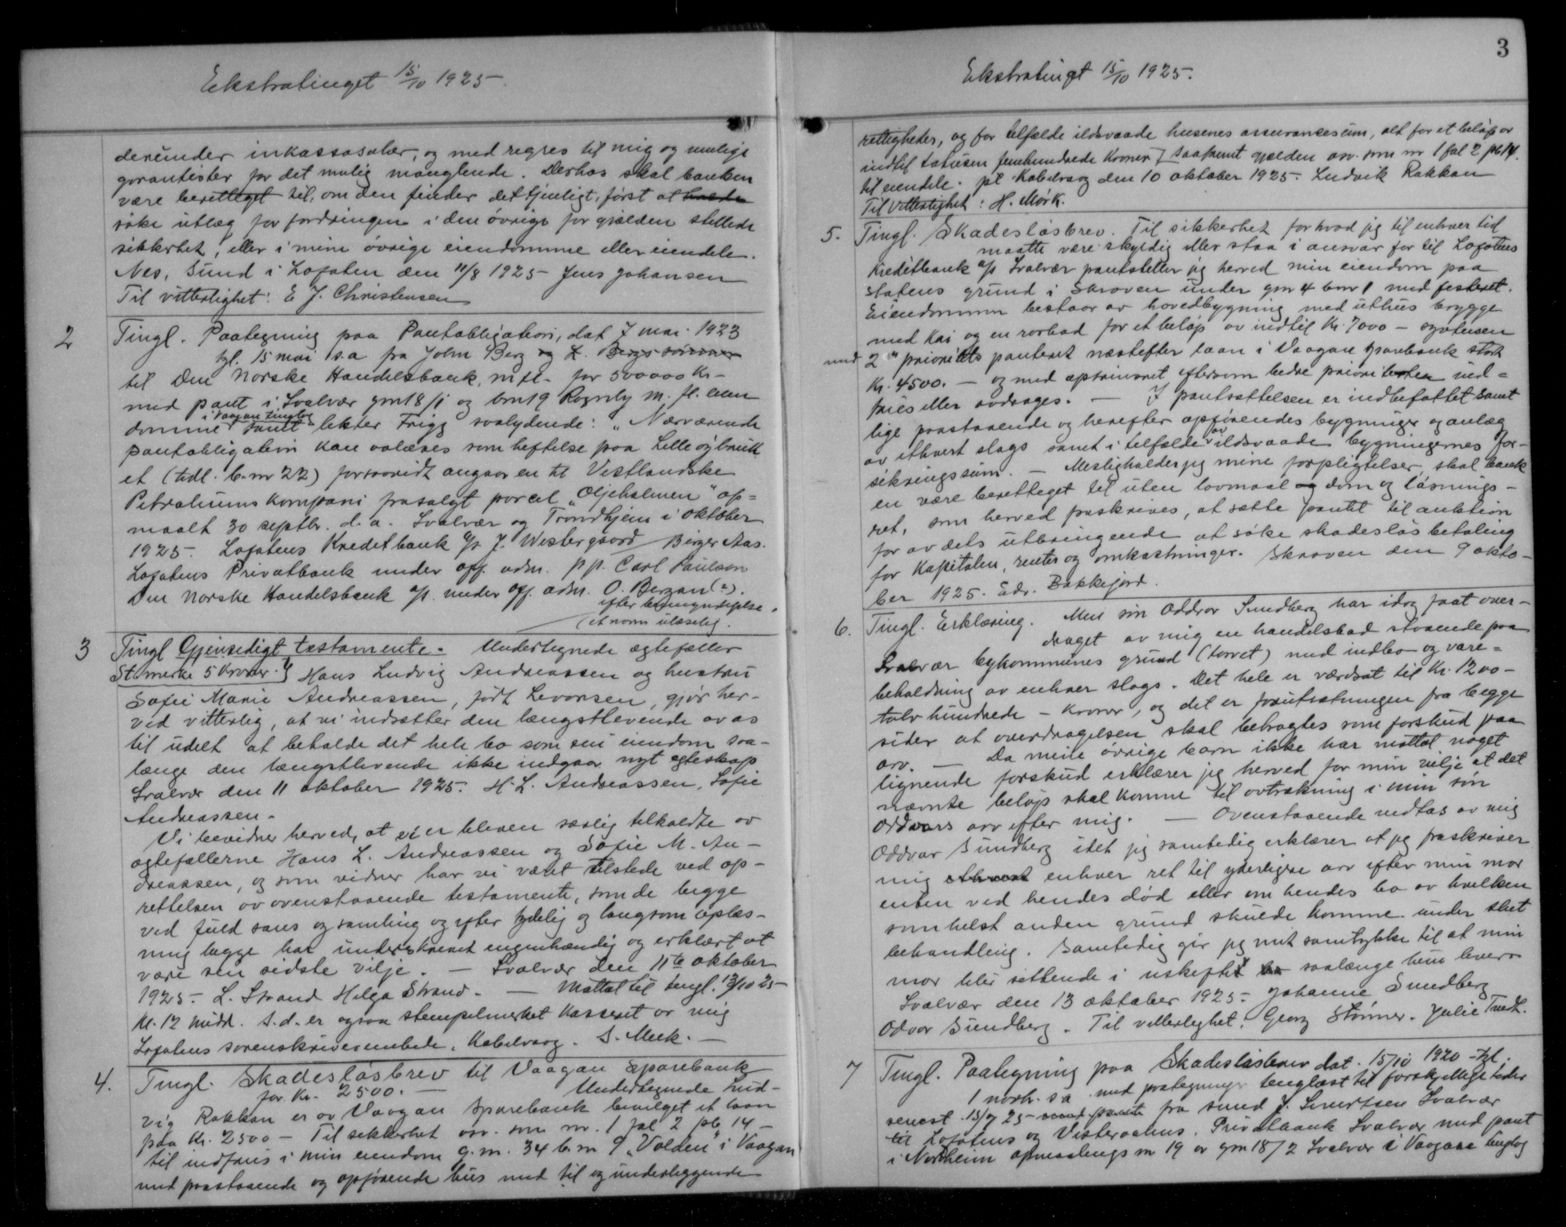 Ekstratinget 15/10 1925.
derunder inkassosalær, og med regres til mig og mulige
garantister for det mulig manglende. Derhos skal banken
være berettiget til, om den finder det tjenligt, først at
søke utlæg for fordringen i den øvrige for gjælden stillede
sikkerhet, eller i mine øvrige eiendomme eller eiendele.
Nes, Sund i Lofoten den 11/8 1925 Jens Johansen
Til vitterlighet: E J. Christensen
2 Tingl. Paategning paa Pantobligation, dat. 7 mai 1923
tgl. 15 mai s.a fra John Berg og
til Den Norske Handelsbank, m.fl. for 500000 Kr.
med pant i Svolvær gm 18/1 og bm 19 Rognly m. fl. eien
domme i Vaagan tinglag samt lekter Frigg saalydende: "Nærværende
pantobligation kan avlæses som heftelse paa Lille øybruk
et (tidl. b.nr 22) forsaavidt angaar en til Vestlandske
Petroleumskompani frasolgt parcel "Oljeholmen" op=
maalt 30 septbr. d.a. Svolvær og Trondhjem i oktober
1925. Lofotens Kreditbank A/S J. Westergaard / Berger Aas.
Lofotens Privatbank under off. adm. p.p. Carl Paulson
Den Norske Handelsbank A/S. under off. adm. O. Bergan (?).
efter bemyndigelse.
/ et navn ulæselig.
3 Tingl Gjensidigt testamente. Undertegnede ægtefæller
St. merke 5 kroner. Hans Ludvig Andreassen og hustru
Sofie Marie Andreassen, født Levorsen, gjør her-
ved vitterlig, at vi indsætter den længstlevende av os
til udelt at beholde det hele bo som sin eiendom saa-
længe den længstlevende ikke indgaar nyt egteskap
Svolvær den 11 oktober 1925. H. L. Andreassen. Sofie
Andreassen.
Vi bevidner herved, at vi er bleven særlig tilkaldte av
ægtefællerne Hans L. Andreassen og Sofie M. An-
dreassen, og som vidner har vi været tilstede ved op-
rettelsen av ovenstaaende testamente, som de begge
ved fuld sans og samling og efter tydelig og langsom oplæs-
ning begge har underskrevet egenhændig og erklært at
være sin sidste vilje. - Svolvær den 11te oktober
1925. L. Strand Helga Strand. - Mottat til tingl. 13/10 25
kl. 12 midd. S.d. er ogsaa stempelmerket kasseret av mig
Lofotens sorenskriverembede, Kabelvaag. S. Meek. -
4. Tingl. Skadesløsbrev til Vaagan Sparebank
for Kr. 2500. - Undertegnede Lud-
vig Rakkan er av Vaagan Sparebank bevilget et laan
paa Kr. 2500 - Til sikkerhet osv. som nr. 1 fol 2 pb. 14 -
til indføris i min eiendom g.m. 34 b.m. 9 "Volden" i Vaagan
med paastaaende og opførende hus med til og underliggende
3
Ekstratinget 15/10 1925.
rettigheder, og for tilfælde ildsvaade husenes assurancesum, alt for et beløp av
indtil totusen femhundrede kroner saafremt gjælden osv. som nr 1 fol 2 pb 14.
til eiendele. pt. Kabelvaag den 10 oktober 1925. Ludvik Rakkan
Til vitterlighet: H. Mørk.
5. Tingl. Skadesløsbrev. Til sikkerhet for hvad jeg til enhver tid
maatte være skyldig eller staa i ansvar for til Lofotens
Kreditbank A/S Svolvær pantsetter jeg herved min eiendom paa
statens grund i Skroven under gm 4 bm 1 med festeret.
Eiendommen bestaar av hovedbygning med uthus brygge
med kai og en rorbod for et beløp av indtil Kr. 7000 - syvtusen
med 2" prioritets panteret næstefter laan i Vaagan Sparebank stort
Kr. 4500. - og med oprinsret eftersom bedre prioriteter ned=
føies eller avdrages. - I pantsættelsen er indbefattet samt
lige paastaaende og herefter opførendes bygninger og anlæg
av ethvert slags samt i tilfælde av ildsvaade bygningernes for-
sikringssum. - Misligholder jeg mine forpligtelser, skal bank
en være berettiget til uten lovmaal og dom og løsnings-
ret, som herved fraskrives, at sætte pantet til auktion
for av dets utbringende at søke skadesløs betaling
for kapitalen, renter og omkostninger. Skroven den 9 okto-
ber 1925. Edv. Bakkejord.
6. Tingl. Erklæring. Min søn Oddvar Sundberg har idag faat over-
draget av mig en handelsbod staaende paa
Svolvær bykommunes grund (torvet) med indbo- og vare=
beholdning av enhver slags. Det hele er værdsat til Kr. 1200 -
tolv hundrede - kroner, og det er forutsetningen fra begge
sider at overdragelsen skal betragtes som forskud paa
arv. - Da mine øvrige barn ikke har mottat noget
lignende forskud erklærer jeg herved for min vilje at det
nævnte beløp skal komme til avtrækning i min søn
Oddvars arv efter mig. - Ovenstaaende vedtas av mig
Oddvar Sundberg idet jeg samtidig erklærer at jeg fraskriver
mig enhver ret til yderligere arv efter min mor
enten ved hendes død eller om hendes bo av hvilken
somhelst anden grund skulde komme under skifte
behandling. Samtidig gir jeg mit samtykke til at min
mor blir sittende i uskiftet saalænge hun lever
Svolvær den 13 oktober 1925. Johanne Sundberg
Odvar Sundberg. Til vitterlighet: Georg Størmer. Julie
7 Tingl. Paategning paa Skadesløsbrev dat. 15/10 1920 - tgl.
1 novbr. s.a. med paategninger tinglæst til forskjellige tider
senest 15/9 25 fra Sund J. Sivertsen Svolvær
til Lofotens og Vesteraalens Privatbank Svolvær med pant
i Nordheim opmaalings nr 19 av gm 18/2 Svolvær i Vaagan tinglag